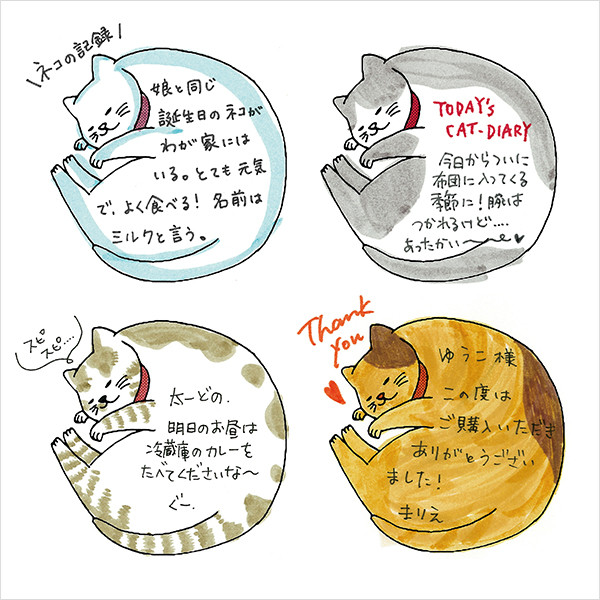 ネコの記録
娘と同じ
誕生日のネコが
わが家には
いる。とても元気
で、よく食べる！名前は
ミルクと言う。
TODAY'S
CAT-DIARY
今日からついに
布団に入ってくる
季節に！腕は
つかれるけど....
あったかい〜♥
スピ
スピ....
太一どの.
明日のお昼は
冷蔵庫のカレーを
たべてくださいな〜
ぐー.
Thank
you
ゆうこ様
この度は
ご購入いただき
ありがとうござい
ました！
まりえ